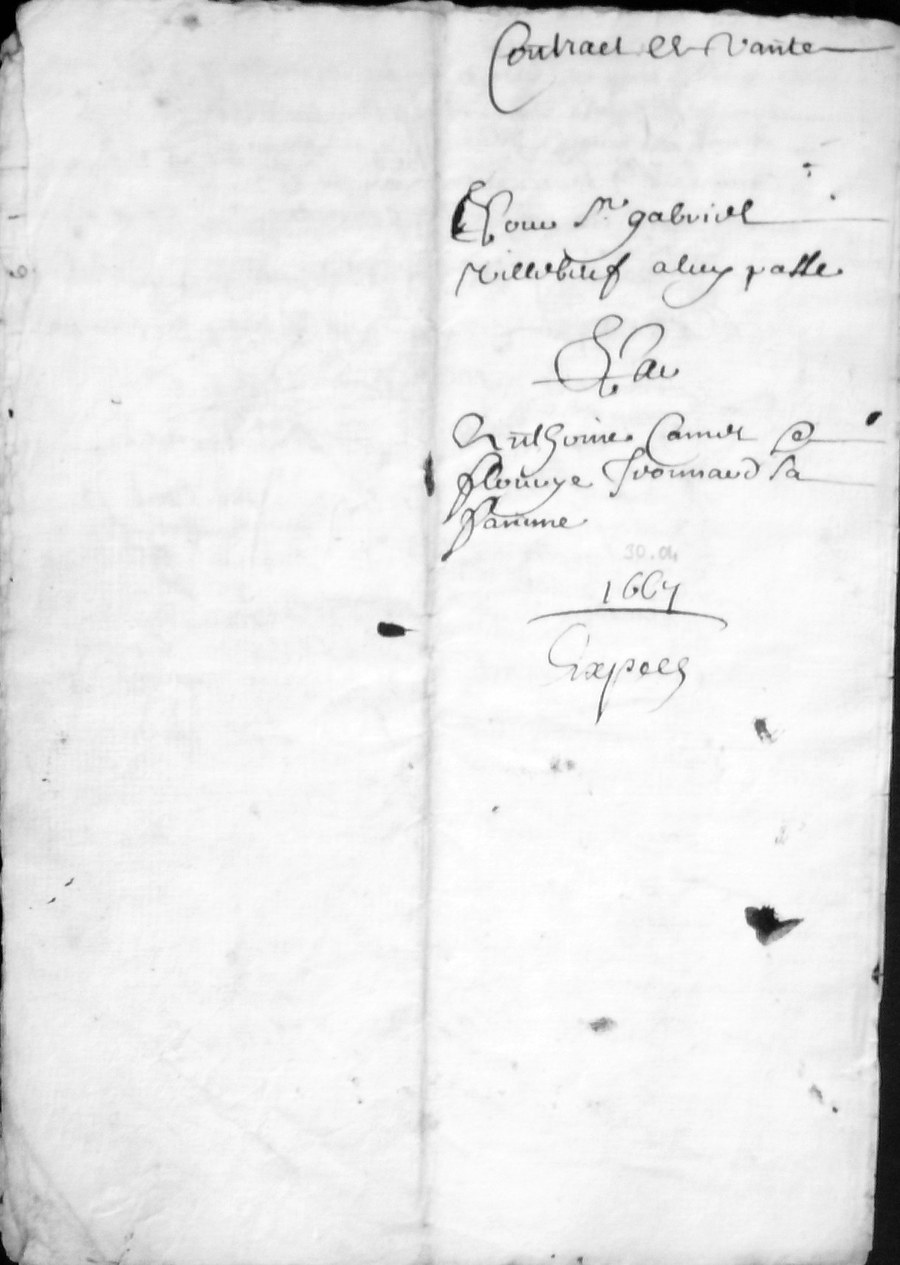 Contract de Vante
Pour Sr. gabriel
Villebeuf a luy passe
Par
Anthoine Camet &
flourye Yvonnard sa
famme
30.04
1667
Expedé